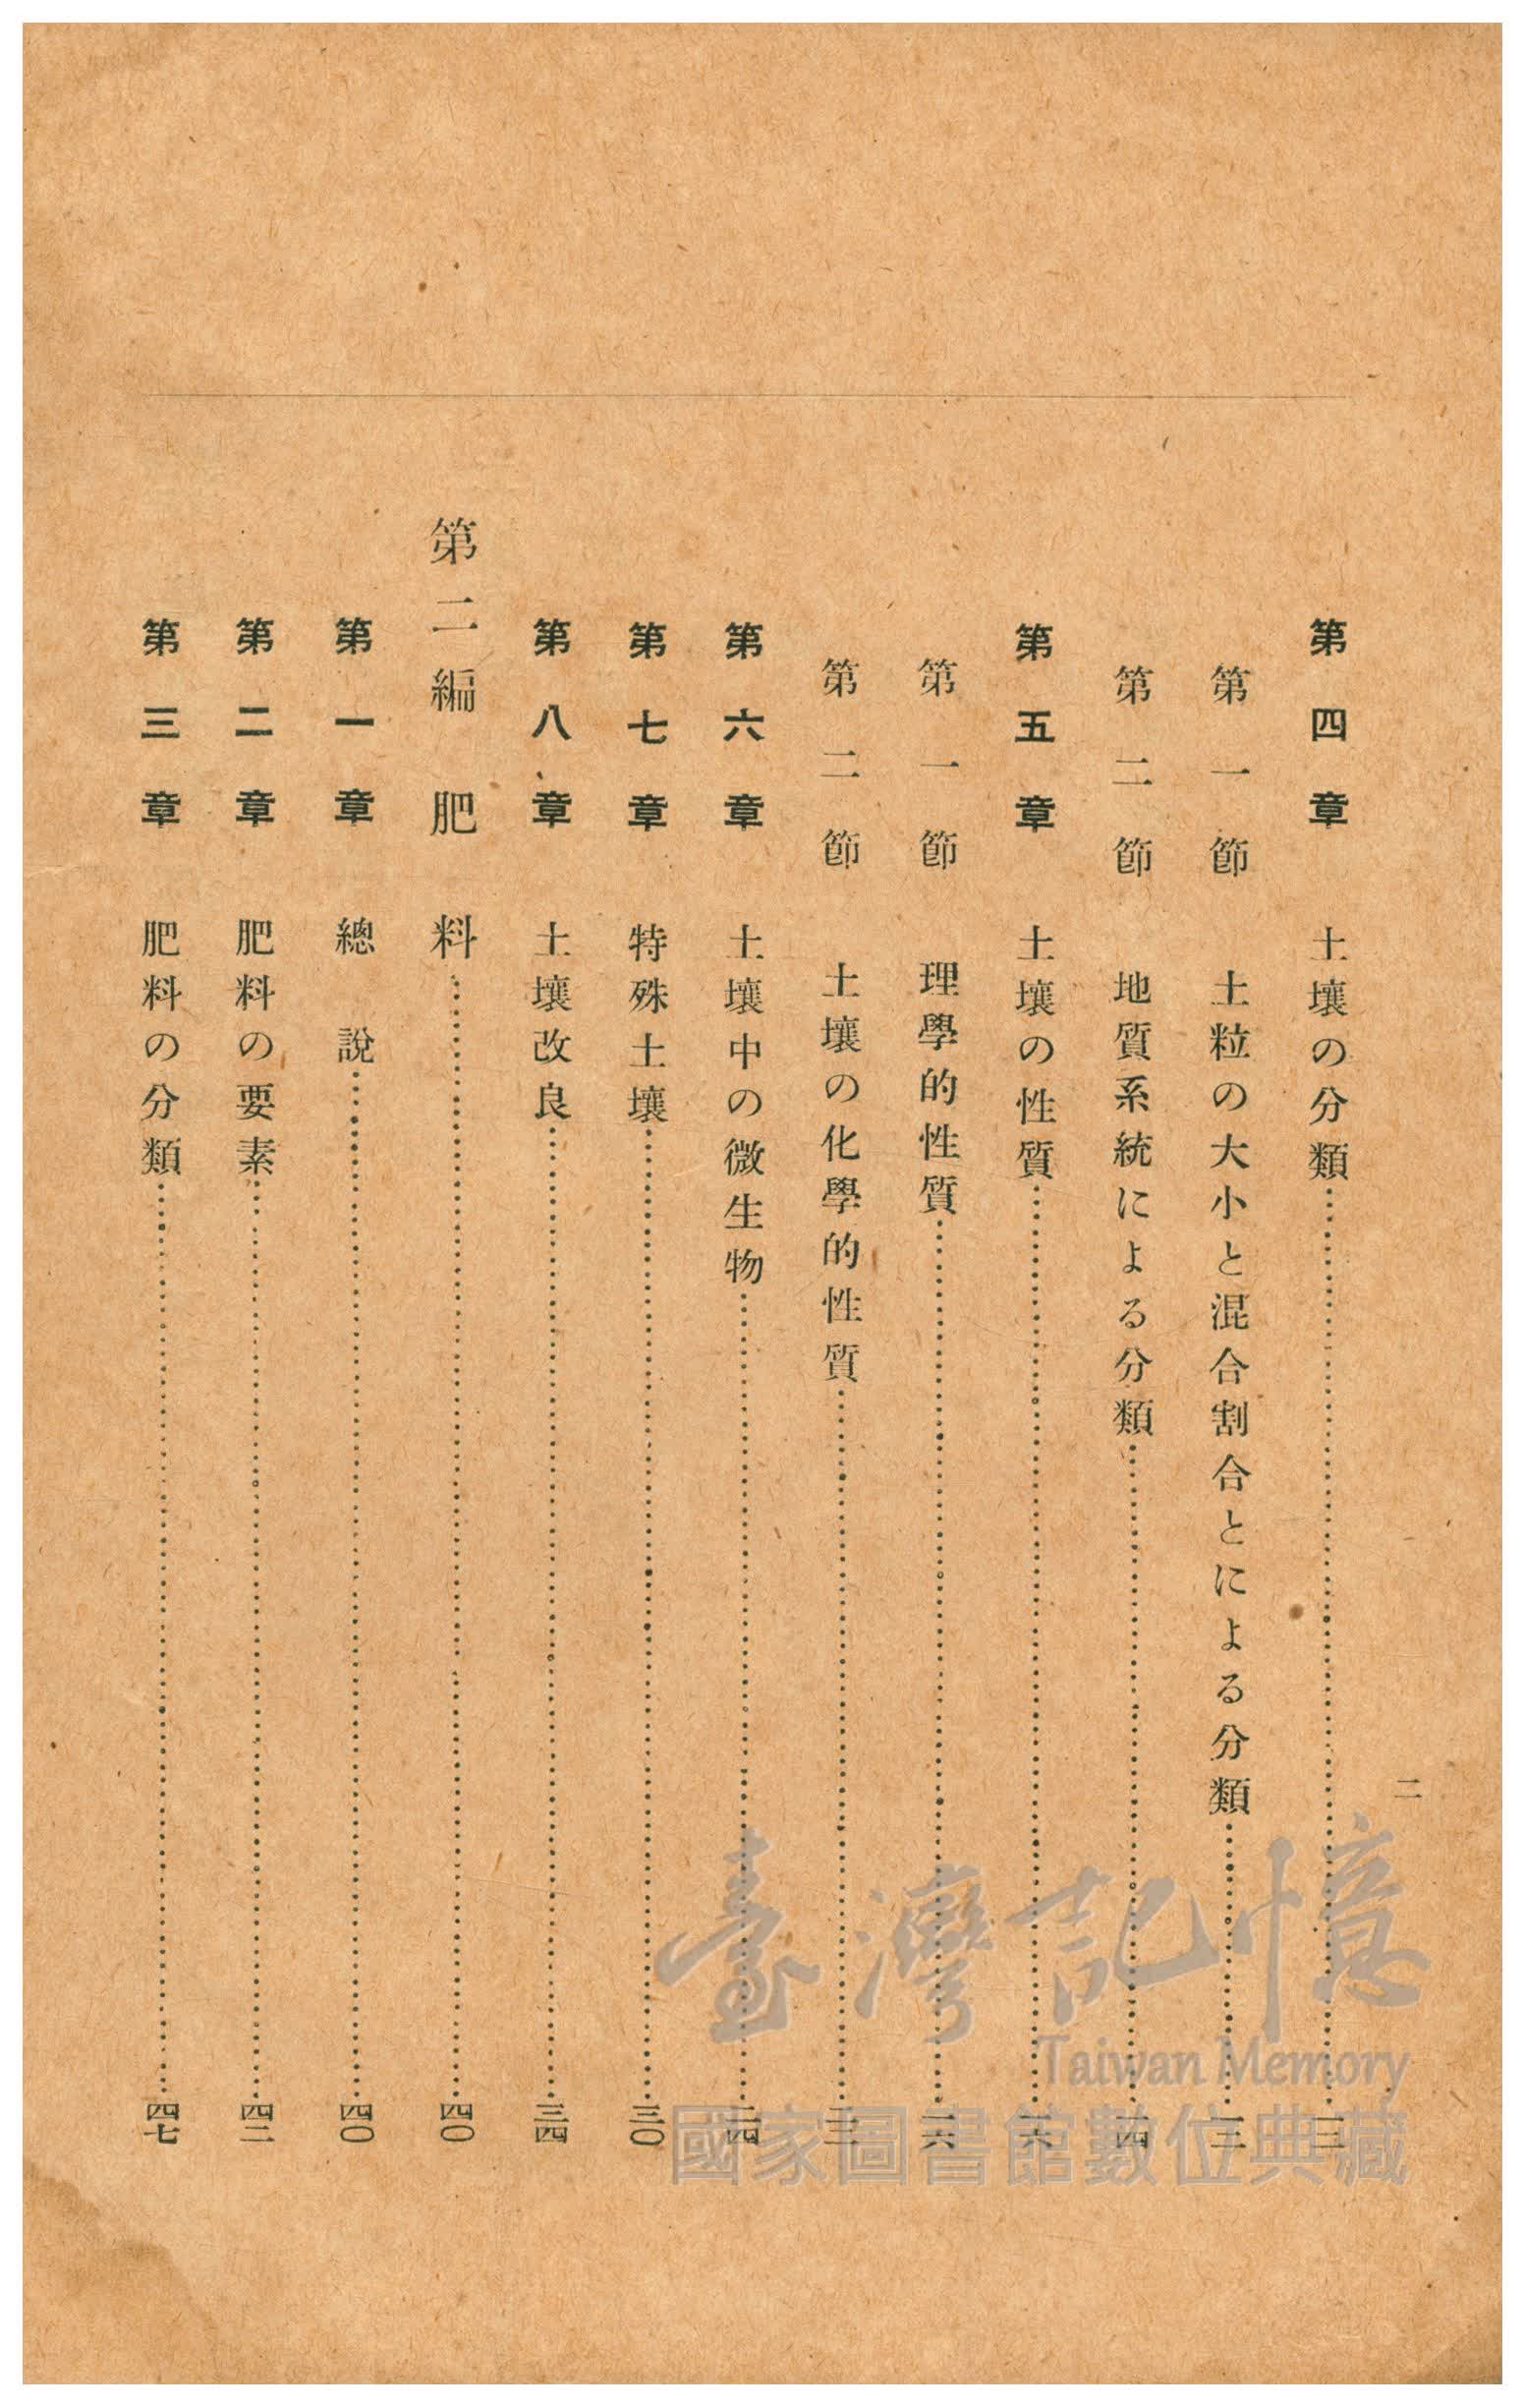 二
第四章 土壤の分類……一三
第一節 土粒の大小と混合割合とによる分類……一三
第二節 地質系統による分類……一四
第五章 土壤の性質……一六
第一節 理學的性質……一六
第二節 土壤の化學的性質……
第六章 土壤中の微生物……二四
第七章 特殊土壤……三〇
第八章 土壤改良……三四
第二編 肥料……四〇
第一章 總說……四〇
第二章 肥料の要素……四二
第三章 肥料の分類……四七
臺灣記憶
Taiwan Memory
國家圖書館數位典藏